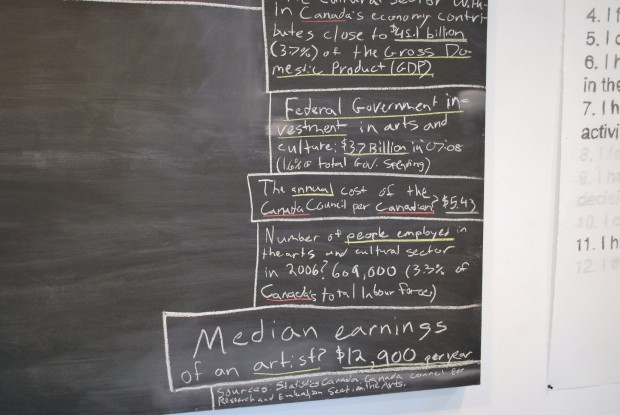 The cultural sector with-
in Canada's economy contri-
butes close to $45.1 billion
(3.7%) of the Gross Do-
mestic Product (GDP)
Federal Government in-
vestment in arts and
culture: $3.7 Billion in 07-08
(1.6% of total Gov. Spending)
The annual cost of the
Canada Council per Canadian? $5.43
Number of people employed in
the arts and cultural sector
in 2006? 609,000 (3.3% of
Canada's total labour force)
Median earnings
of an artist? $12,900 per year
Sources: Statistics Canada, Canada Council
Research and Evaluation Section, the Arts.
4. I
5. I
6. I h
in the
7. I h
activi
8. I
9. I h
decisi
10. I
11. I h
12. I